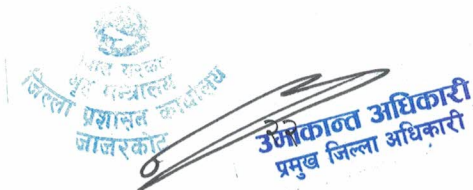 नेपाल सरकार
गृह मन्त्रालय
जिल्ला प्रशासन कार्यालय
जाजरकोट
उमाकान्त अधिकारी
प्रमुख जिल्ला अधिकारी